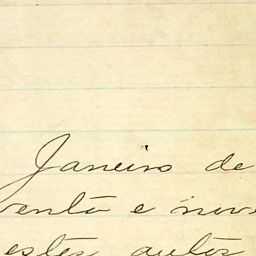 Janeiro de
vento e nove
estes autos